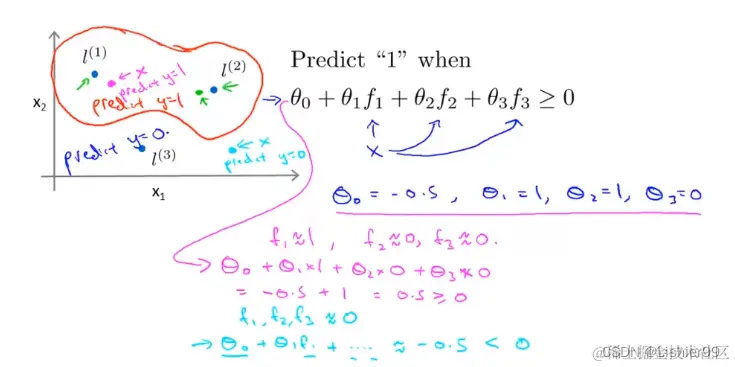 l⁽¹⁾
← x
predict y=1
predict y=1
l⁽²⁾
x₂
predict y=0.
l⁽³⁾
← x
predict y=0
x₁
Predict “1” when
→ θ₀ + θ₁f₁ + θ₂f₂ + θ₃f₃ ≥ 0
x
θ₀ = -0.5, θ₁ = 1, θ₂ = 1, θ₃ = 0
f₁ ≈ 1, f₂ ≈ 0, f₃ ≈ 0.
→ θ₀ + θ₁×1 + θ₂×0 + θ₃×0
= -0.5 + 1 = 0.5 ≥ 0
f₁, f₂, f₃ ≈ 0
→ θ₀ + θ₁f₁ + .... ≈ -0.5 < 0